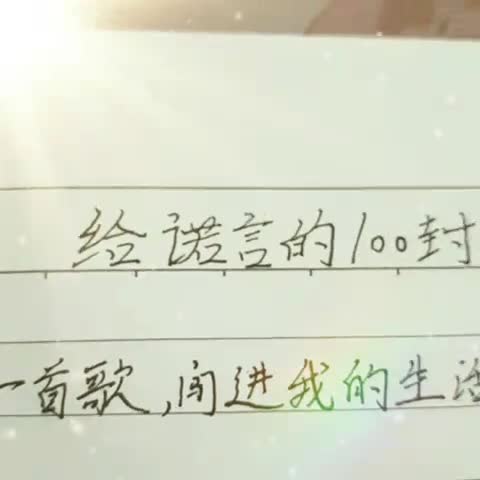 给诺言的100封
一首歌,闯进我的生活